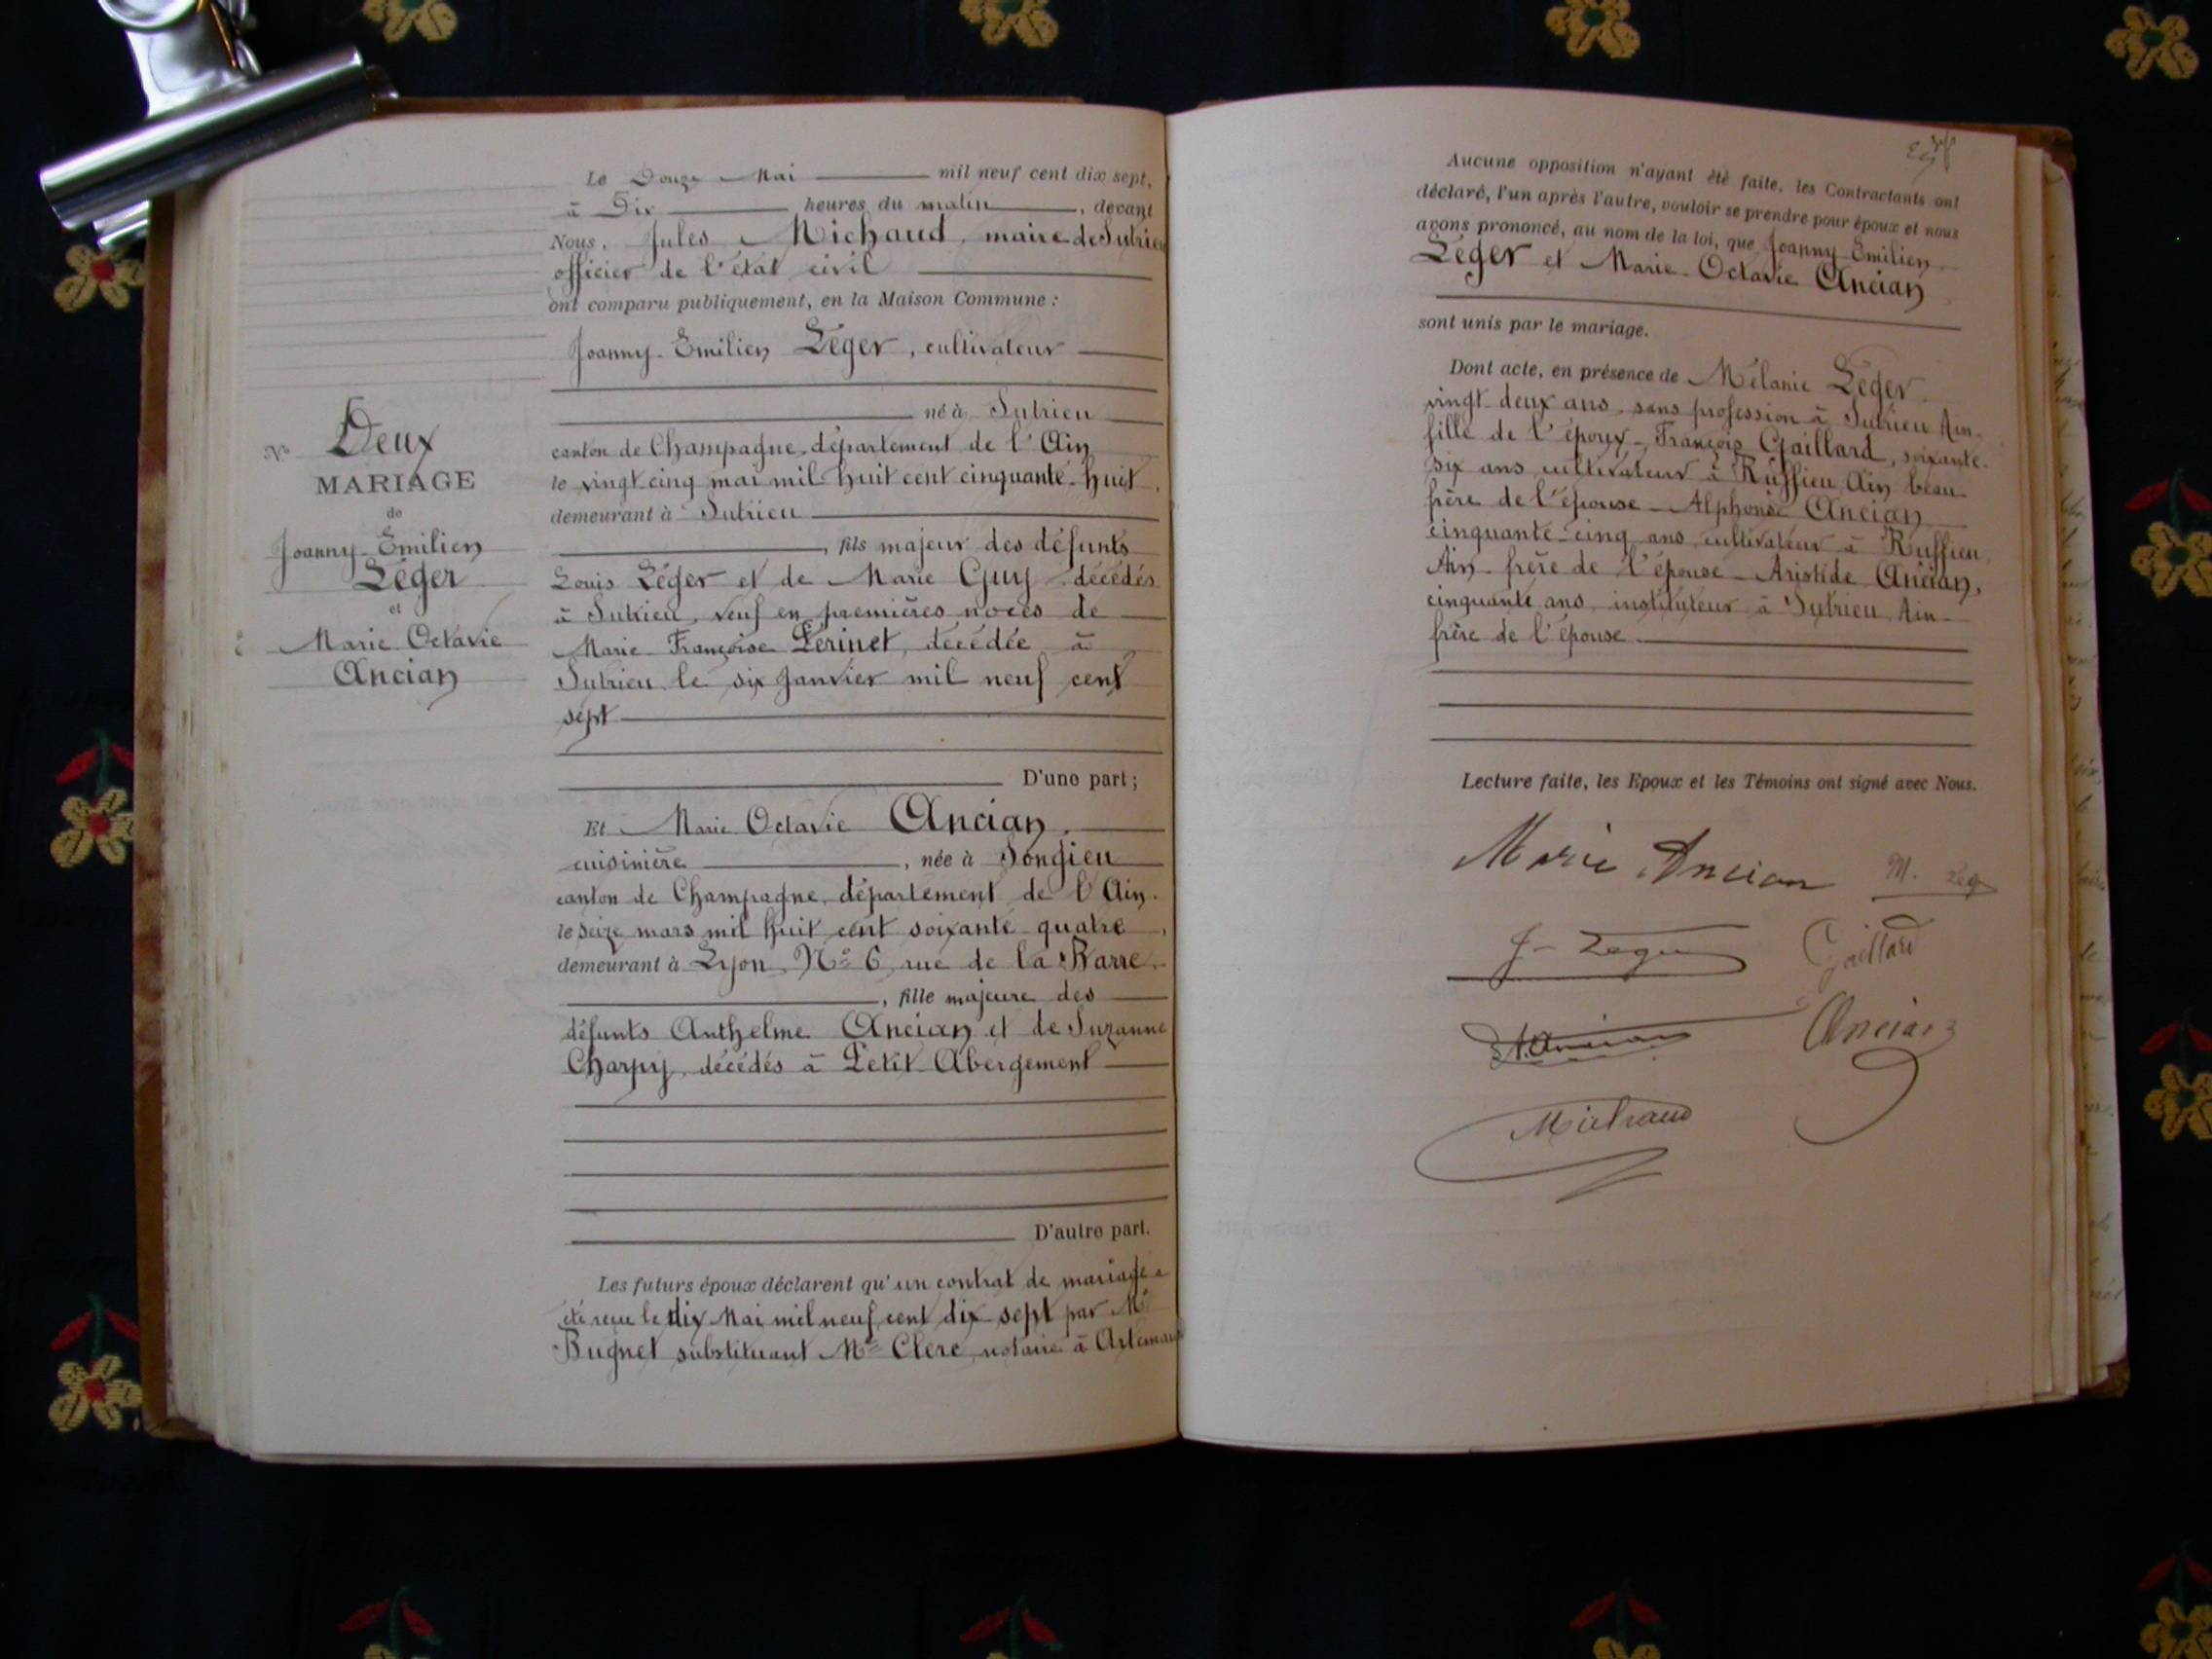 Le Douze Mai mil neuf cent dix sept,
à Dix heures du matin, devant
Nous, Jules Michaud, maire de Sutrieu
officier de l'état civil
ont comparu publiquement, en la Maison Commune :
Joanny-Emilien Léger, cultivateur
né à Sutrieu
canton de Champagne, département de l'Ain
le vingt cinq mai mil huit cent cinquante-huit,
demeurant à Sutrieu
, fils majeur des défunts
Louis Léger et de Marie Guy décédés
à Sutrieu, veuf en premières noces de
Marie Françoise Perinet, décédée à
Sutrieu le six Janvier mil neuf cent
sept
D'une part ;
Et Marie Octavie Ancian,
cuisinière, née à Songieu
canton de Champagne, département de l'Ain.
le seize mars mil huit cent soixante quatre,
demeurant à Lyon, No 6, rue de la Barre,
, fille majeure des
défunts Anthelme Ancian et de Suzanne
Charpy, décédés à Petit Abergement
D'autre part.
Les futurs époux déclarent qu'un contrat de mariage a
été reçu le dix Mai mil neuf cent dix-sept par Me
Bugnet substituant Me Clerc, notaire à Artemare
No Deux
MARIAGE
de
Joanny-Emilien
Léger
et
Marie Octavie
Ancian
Aucune opposition n'ayant été faite, les Contractants ont
déclaré, l'un après l'autre, vouloir se prendre pour époux et nous
avons prononcé, au nom de la loi, que Joanny-Emilien
Léger et Marie-Octavie Ancian
sont unis par le mariage.
Dont acte, en présence de Mélanie Léger
vingt-deux ans, sans profession à Sutrieu Ain.
fille de l'époux - François Gaillard, soixante-
six ans cultivateur à Ruffieu Ain beau-
frère de l'épouse - Alphonse Ancian
cinquante-cinq ans cultivateur à Ruffieu
Ain frère de l'épouse - Aristide Ancian,
cinquante ans, instituteur à Sutrieu Ain
frère de l'épouse.
Lecture faite, les Epoux et les Témoins ont signé avec Nous.
Marie Ancian M. Leg
J- Leger Gaillard
A. Ancian Ancian
Michaud